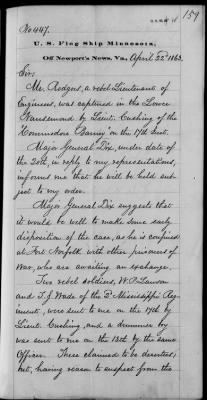 159
No 447.
U. S. Flag Ship Minnesota,
Off Newport's News, Va., April 22d 1863.
Sir:
Mr. Rodgers, a rebel Lieutenant of
Engineers, was captured in the Lower
Nansemond by Lieut. Cushing of the
"Commodore Barney" on the 17th inst.
Major General Dix, under date of
the 20th, in reply to my representations,
informs me that he will be held sub-
ject to my order.
Major General Dix suggests that
it would be well to make some early
disposition of the case, as he is confined
at Fort Norfolk with other prisoners of
war, who are awaiting an exchange.
Two rebel soldiers, W. P. Lawson
and T. J. Wade of the 2d Mississippi Reg-
iment, were sent to me on the 17th by
Lieut. Cushing, and a drummer boy
was sent to me on the 13th by the same
Officer. These claimed to be deserters;
but, having reason to suspect from the